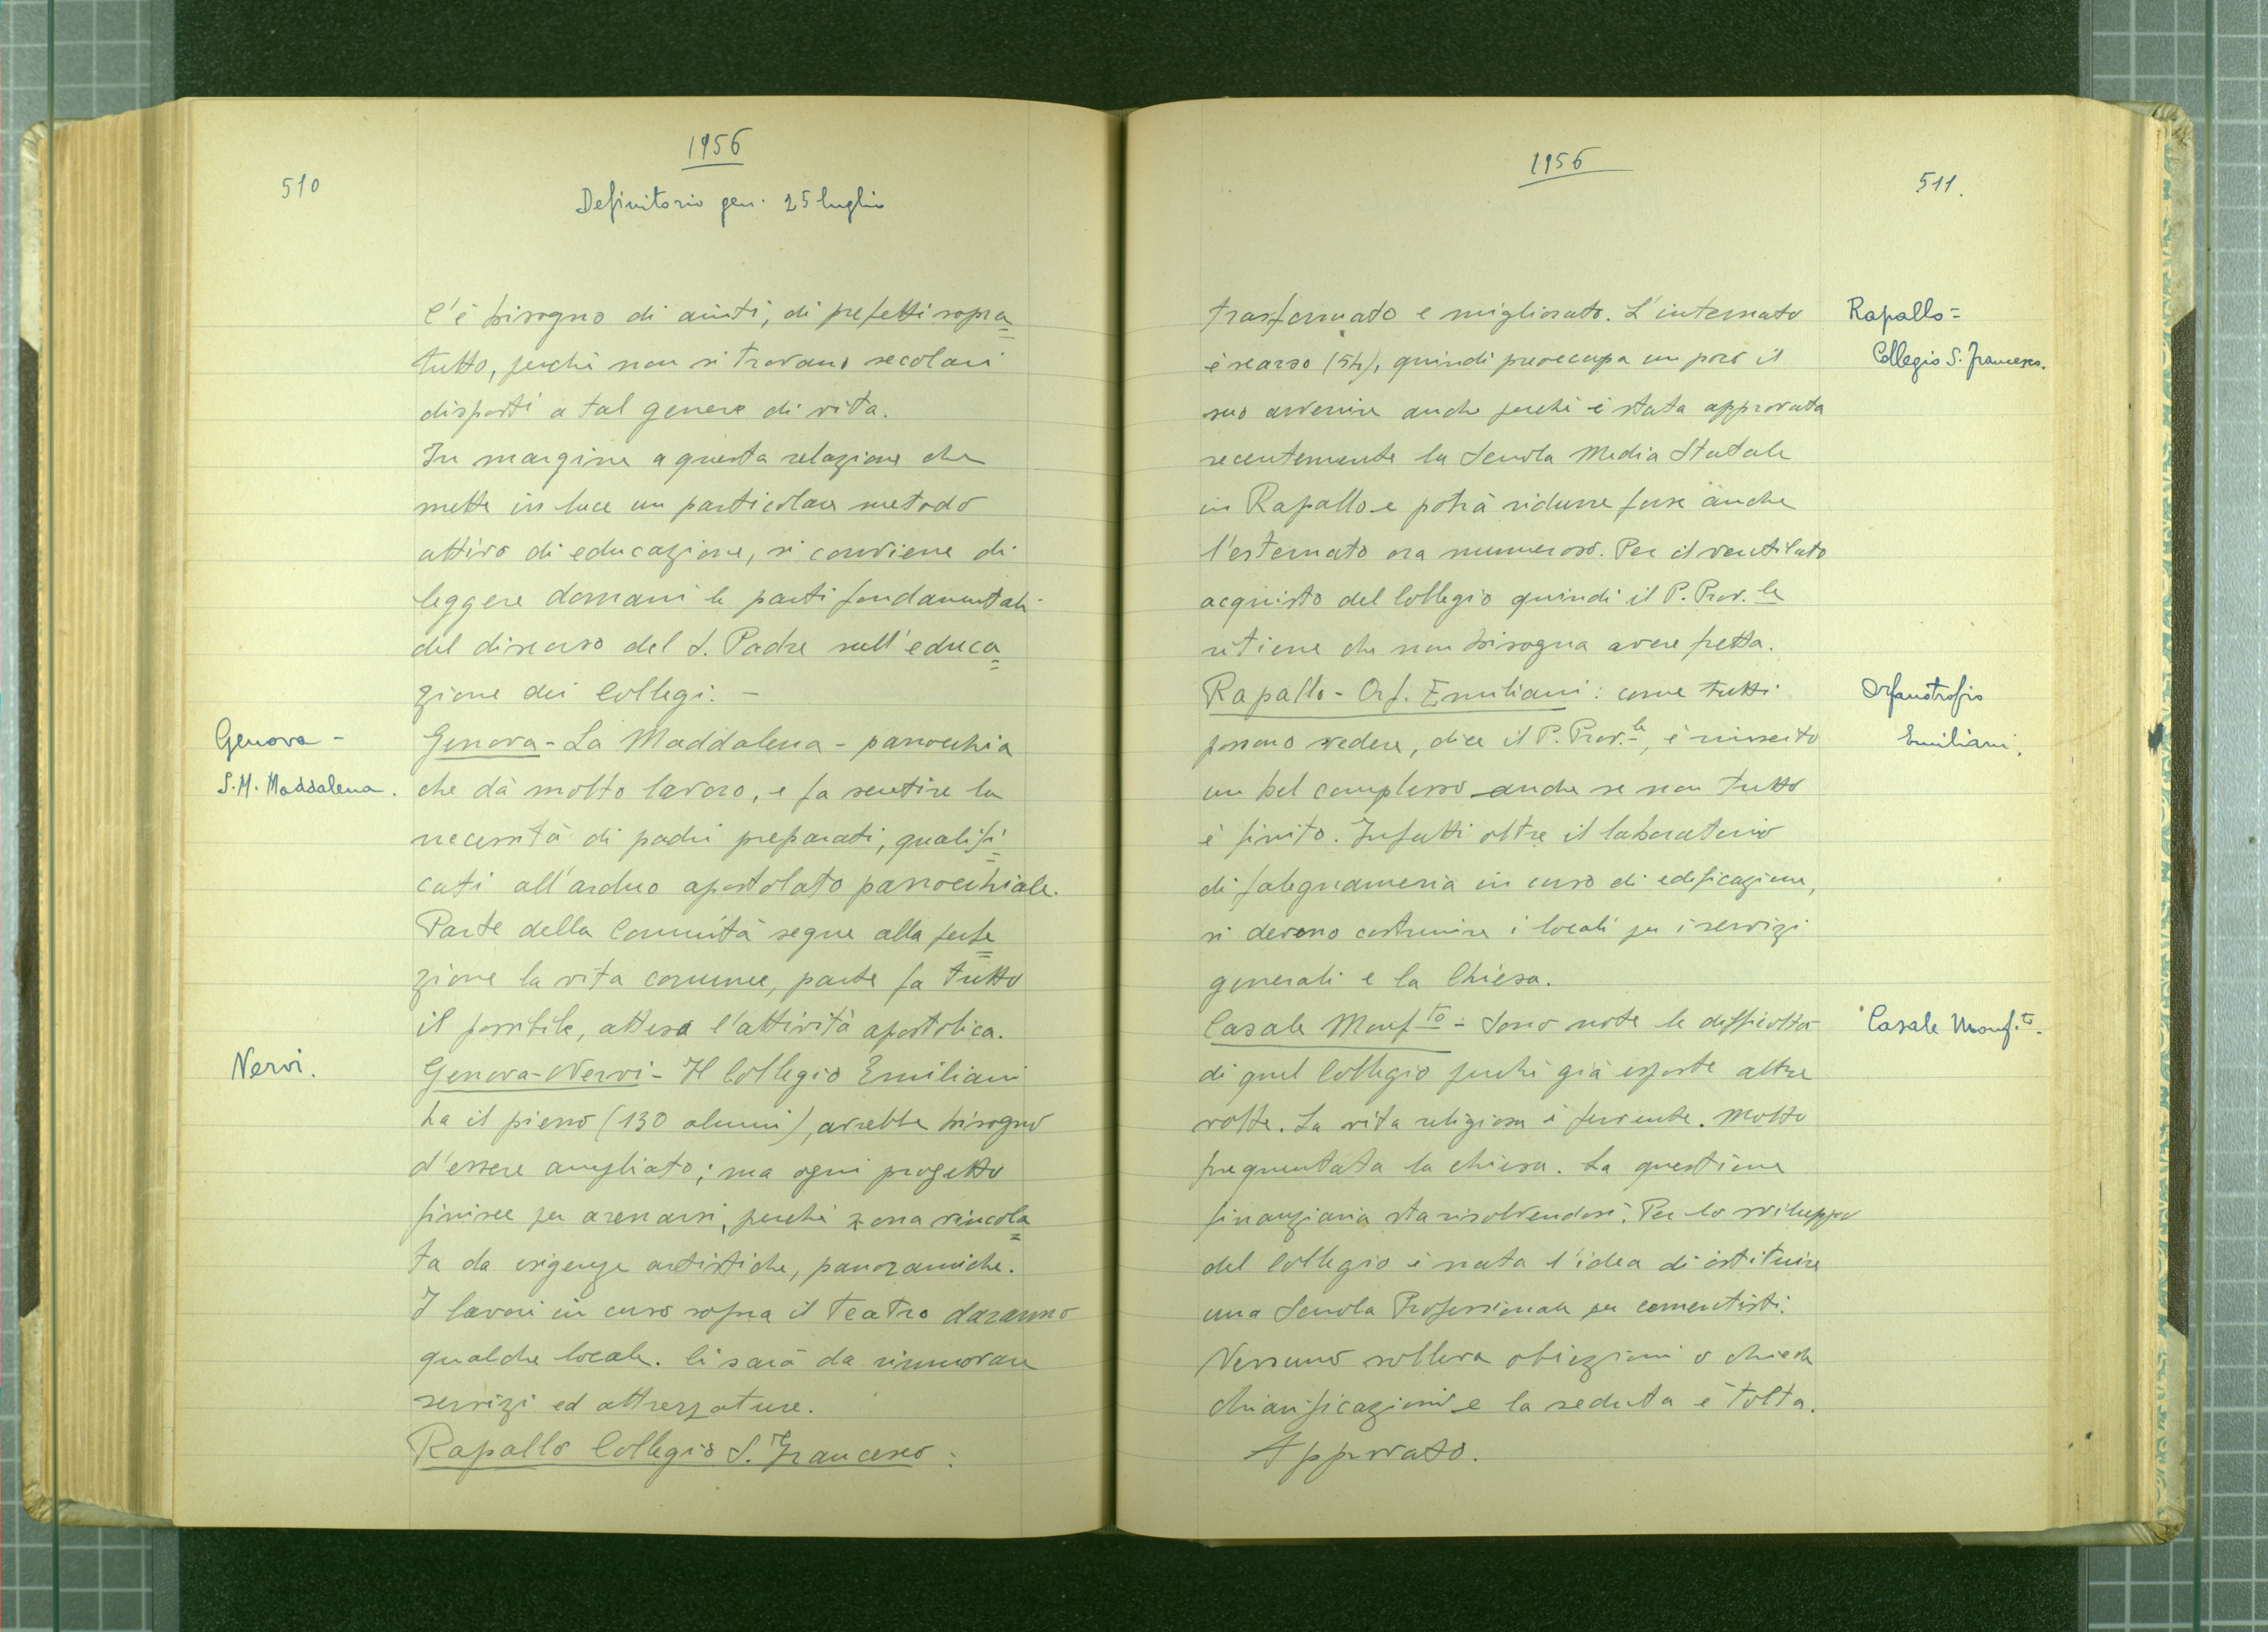 1956
510
Definitorio gen. 25 luglio
C'è bisogno di aiuti, di prefetti sopra=
tutto, perchè non si trovano secolari
disposti a tal genere di vita.
In margine a questa relazione che
mette in luce un particolare metodo
attivo di educazione, si conviene di
leggere domani le parti fondamentali
del discorso del S. Padre sull'educa=
zione dei Collegi. -
Genova -
S.M. Maddalena.
Genova - La Maddalena - parrocchia
che dà molto lavoro, e fa sentire la
necessità di padri preparati, qualifi=
cati all'arduo apostolato parrocchiale.
Parte della Comunità segue alla perfe=
zione la vita comune, parte fa tutto
il possibile, attesa l'attività apostolica.
Nervi.
Genova-Nervi - Il Collegio Emiliani
ha il pieno (130 alunni), avrebbe bisogno
d'essere ampliato; ma ogni progetto
finisce per arenarsi, perchè zona vincola=
ta da esigenze artistiche, panoramiche.
I lavori in corso sopra il teatro daranno
qualche locale. Ci sarà da rinnovare
servizi ed attrezzature.
Rapallo Collegio S. Francesco:
1956
511.
Rapallo=
Collegio S. Francesco.
trasformato e migliorato. L'internato
è scarso (54), quindi preoccupa un poco il
suo avvenire anche perchè è stata approvata
recentemente la Scuola Media Statale
in Rapallo e potrà ridurre forse anche
l'esternato ora numeroso. Per il ventilato
acquisto del Collegio quindi il P. Prov.le
ritiene che non bisogna avere fretta.
Orfanotrofio
Emiliani.
Rapallo - Orf. Emiliani: come tutti
possono vedere, dice il P. Prov.le, è riuscito
un bel complesso anche se non tutto
è finito. Infatti oltre il laboratorio
di falegnameria in corso di edificazione,
si devono costruire i locali per i servizi
generali e la Chiesa.
Casale Monf.to.
Casale Monf.to - Sono note le difficoltà
di quel Collegio perchè già esposte altre
volte. La vita religiosa è fervente. Molto
frequentata la chiesa. La questione
finanziaria sta risolvendosi. Per lo sviluppo
del Collegio è nata l'idea di istituire
una Scuola Professionale per cementisti.
Nessuno solleva obiezioni o chiede
chiarificazioni e la seduta è tolta.
Approvato.